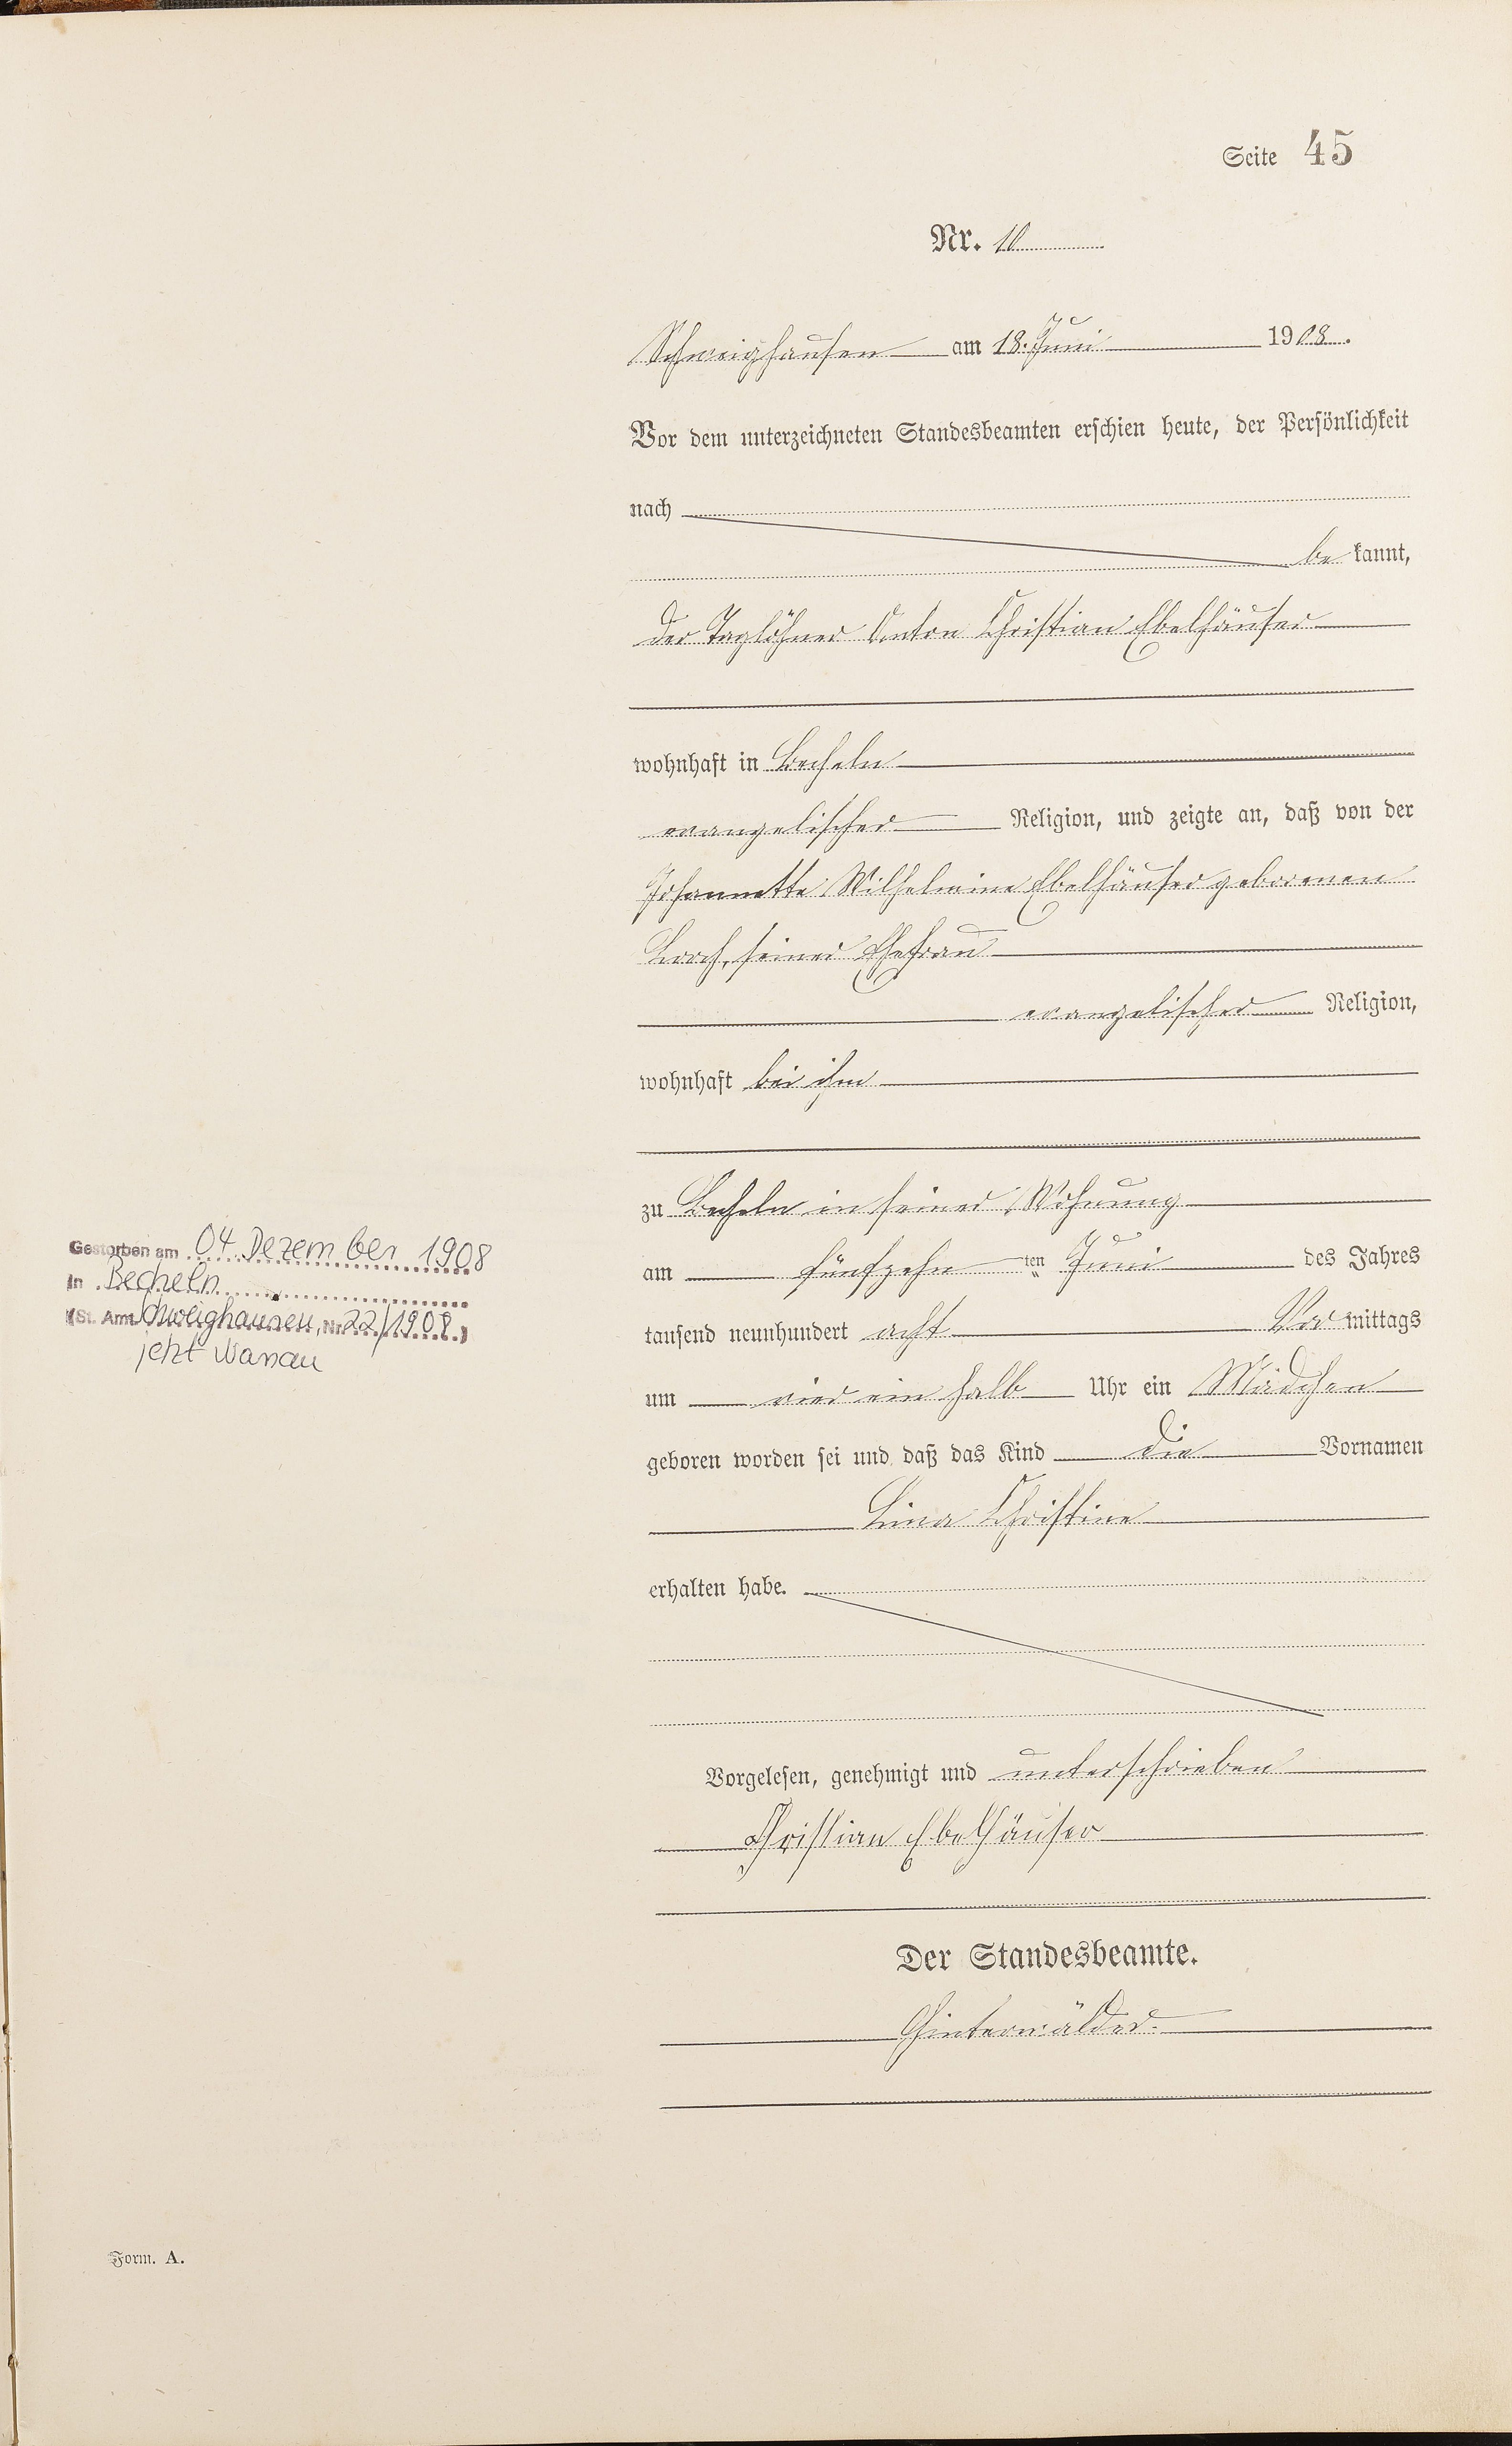 Seite 45
Nr. 10
Schweighausen am 18. Juni 1908.
Vor dem unterzeichneten Standesbeamten erschien heute, der Persönlichkeit
nach
be kannt,
der Taglöhner Anton Christian Ebelhäuser
wohnhaft in Becheln
evangelischer Religion, und zeigte an, daß von der
Johannette Wilhelmine Ebelhäuser geborenen
Lorch, seiner Ehefrau
evangelischer Religion,
wohnhaft bei ihm
zu Becheln in seiner Wohnung
am fünfzehn ten Juni des Jahres
tausend neunhundert acht Vor mittags
um vier ein halb Uhr ein Mädchen
geboren worden sei und daß das Kind die Vornamen
Lina Christine
erhalten habe.
Vorgelesen, genehmigt und unterschrieben
Christian Ebelhäuser
Der Standesbeamte.
Hinterwälder.
Gestorben am 04. Dezember 1908
in Becheln
(St. Amt Schweighausen, Nr. 22/1908.)
jetzt Nassau
Form. A.